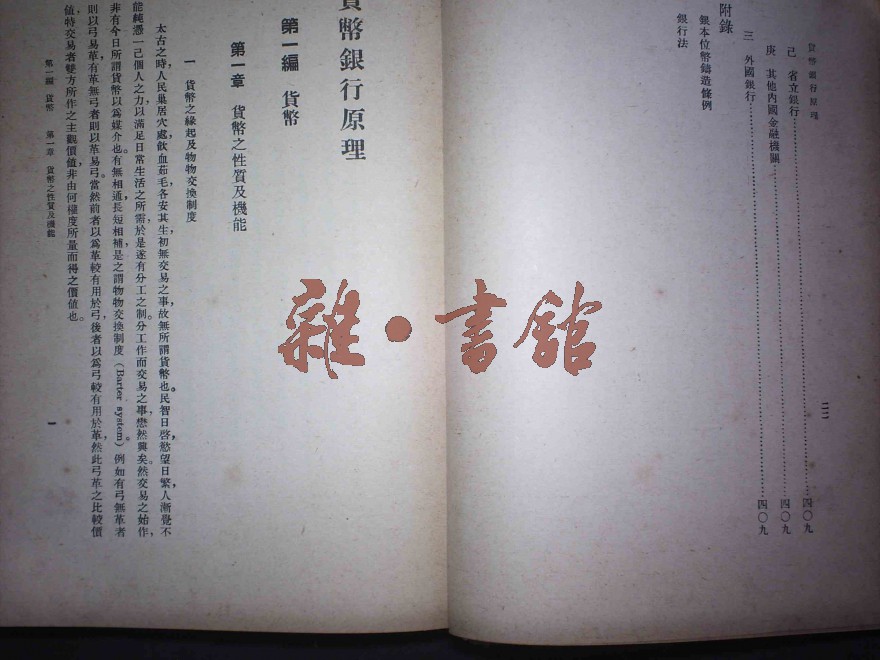 貨幣銀行原理
己 省立銀行 四〇九
庚 其他內國金融機關 四〇九
三 外國銀行 四〇九
附錄
銀本位幣鑄造條例
銀行法
貨幣銀行原理
第一編 貨幣
第一章 貨幣之性質及機能
一 貨幣之緣起及物物交換制度
太古之時，人民巢居穴處，飲血茹毛，各安其生，初無交易之事，故無所謂貨幣也。民智日啓，慾望日繁，人漸覺不
能純憑一己個人之力，以滿足日常生活之所需，於是遂有分工之制。分工作而交易之事，懋然興矣。然交易之始作，
非有今日所謂貨幣以爲媒介也。有無相通，長短相補，是之謂物物交換制度（Barter system）。例如有弓無革者
則以弓易革，有革無弓者則以革易弓。當然前者以爲革較有用於弓，後者以爲弓較有用於革，然此弓革之比較價
值，特交易者雙方所作之主觀價値，非由何權度所量而得之價値也。
第一編 貨幣 第一章 貨幣之性質及機能
一
雜·書館